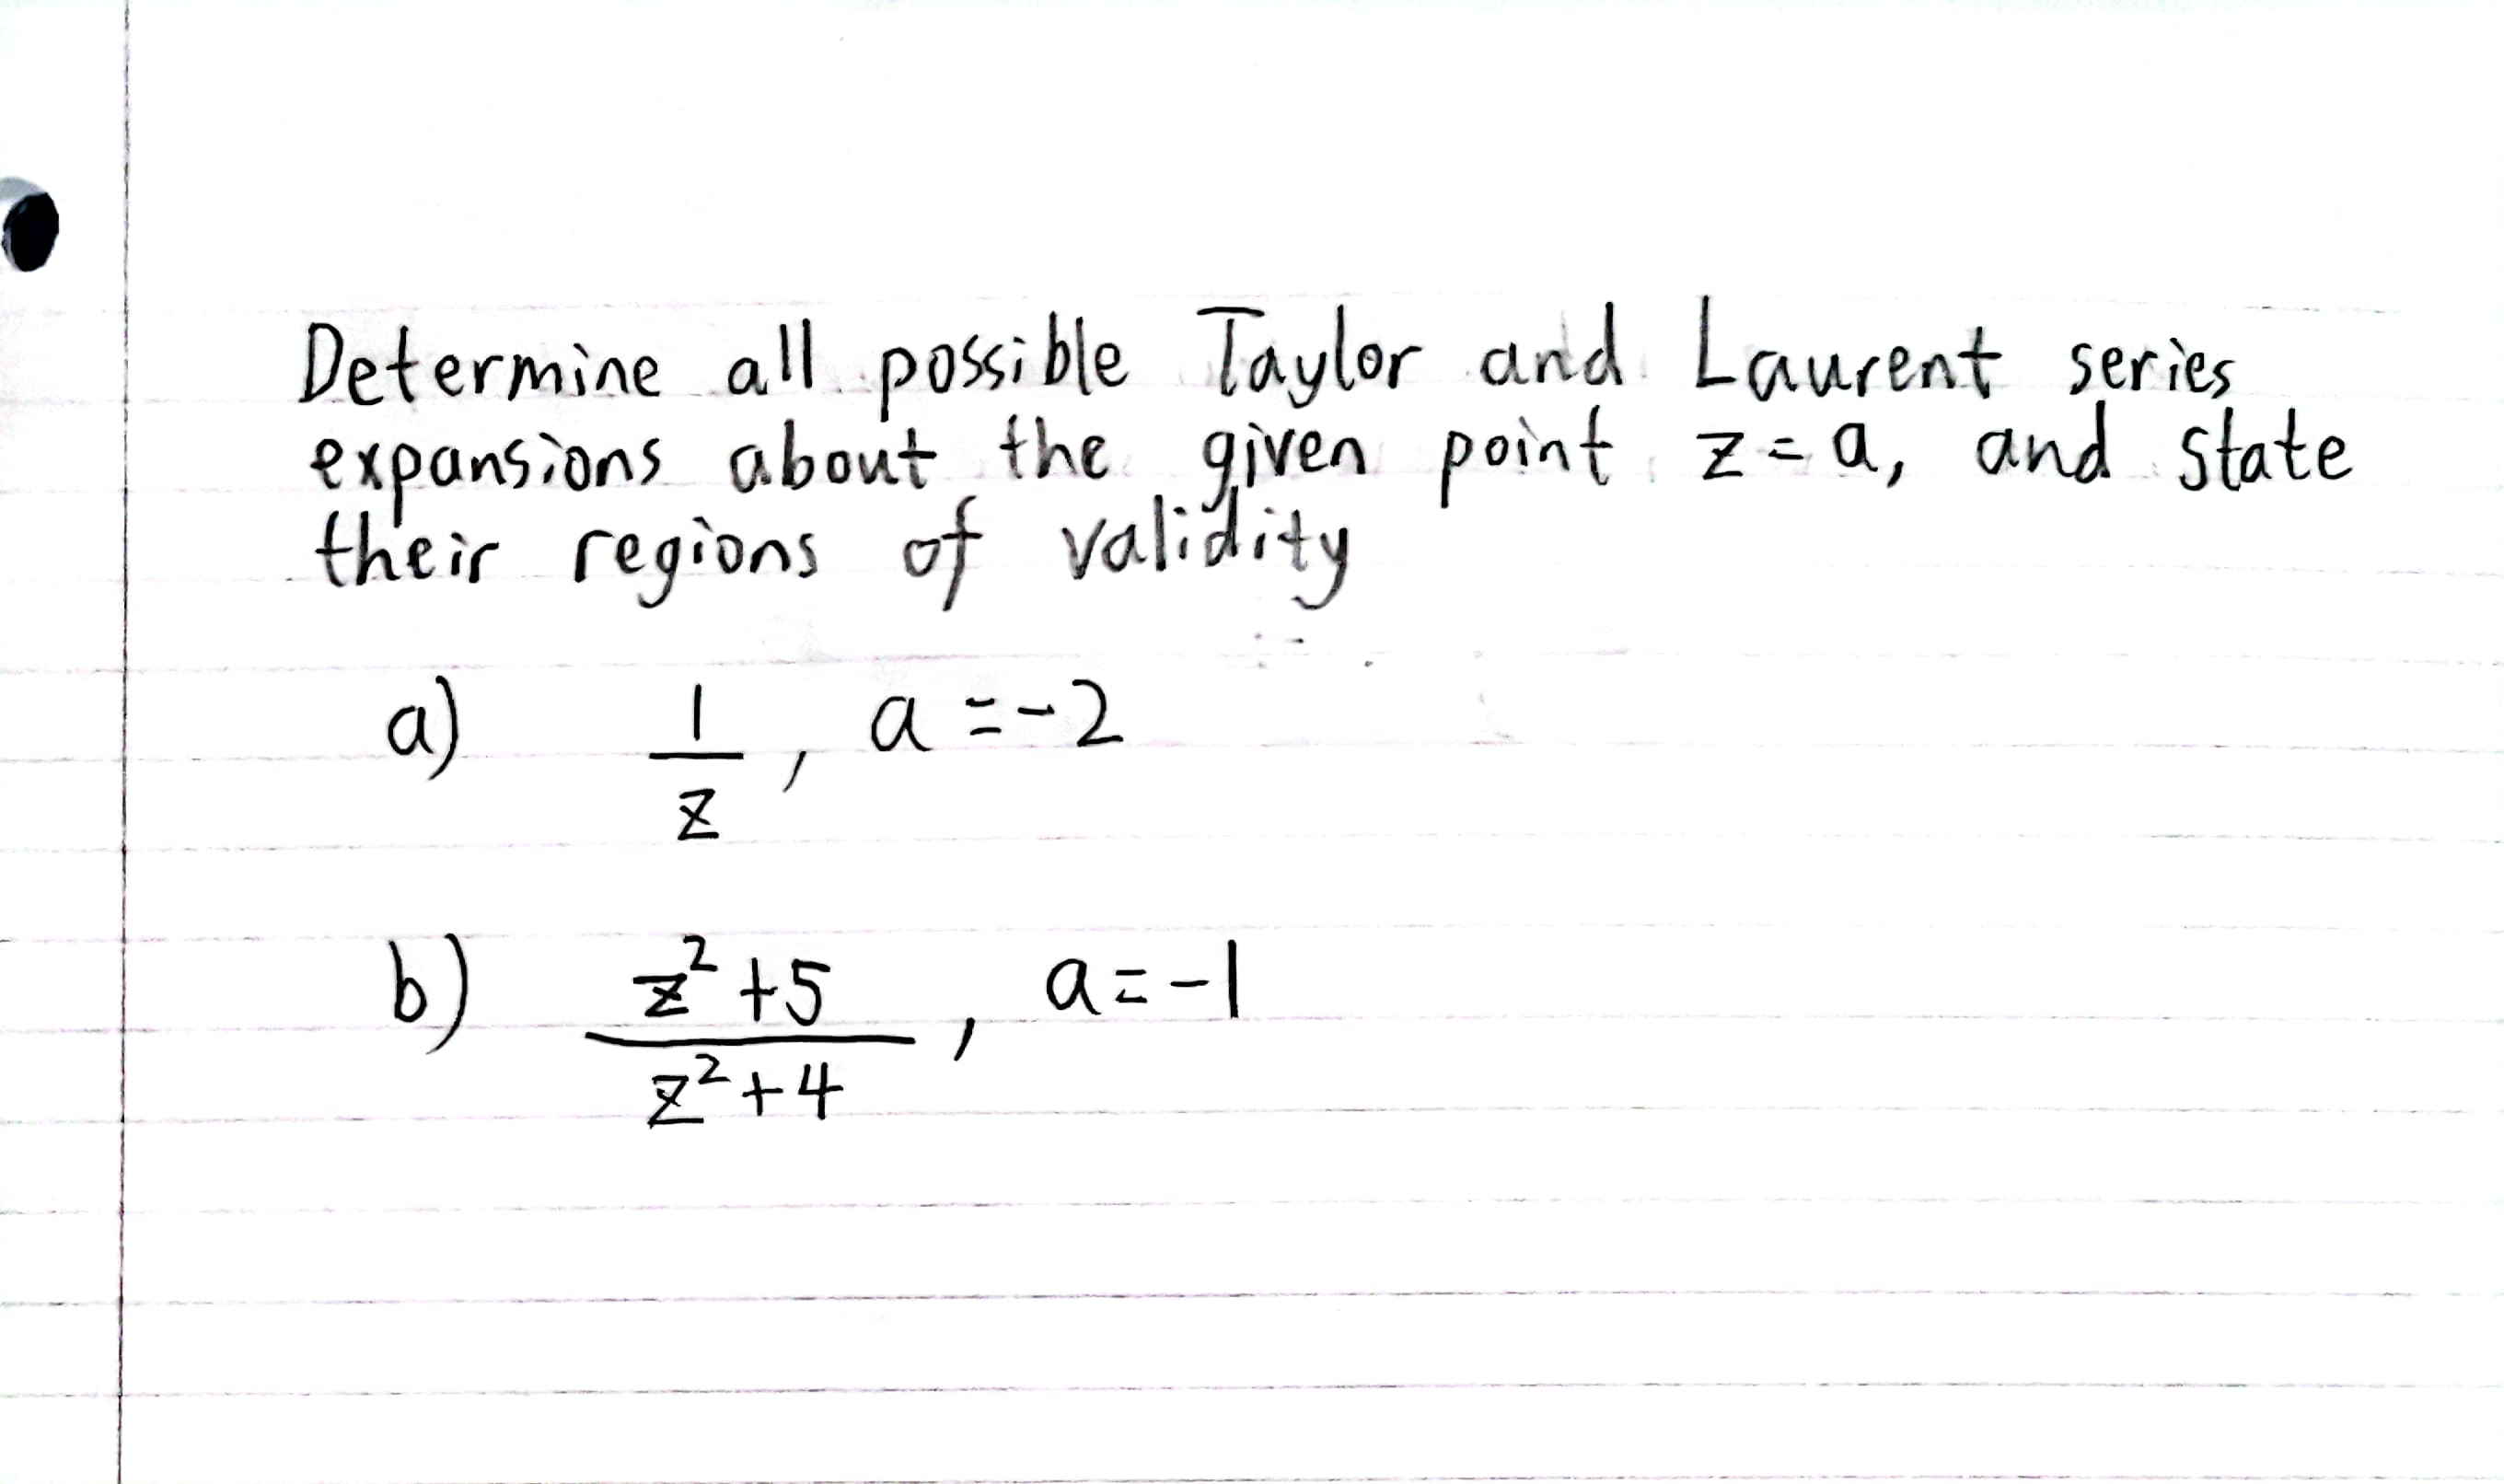 Determine all possible Taylor and Laurent series
expansions about the given point z = a, and state
their regions of validity
a) 1/z, a = -2
b) (z² + 5)/(z² + 4), a = -1